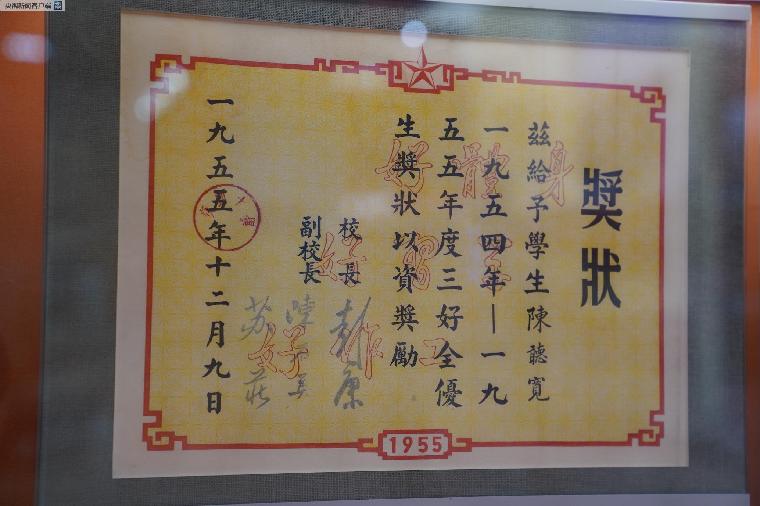 央视新闻客户端
獎狀
茲給予學生陳聽寬
一九五四年—一九
五五年度三好全優
生獎狀以資獎勵
校長 彭康
副校長 陸 蘇莊
一九五五年十二月九日
身體好
學習好
工作好
1955